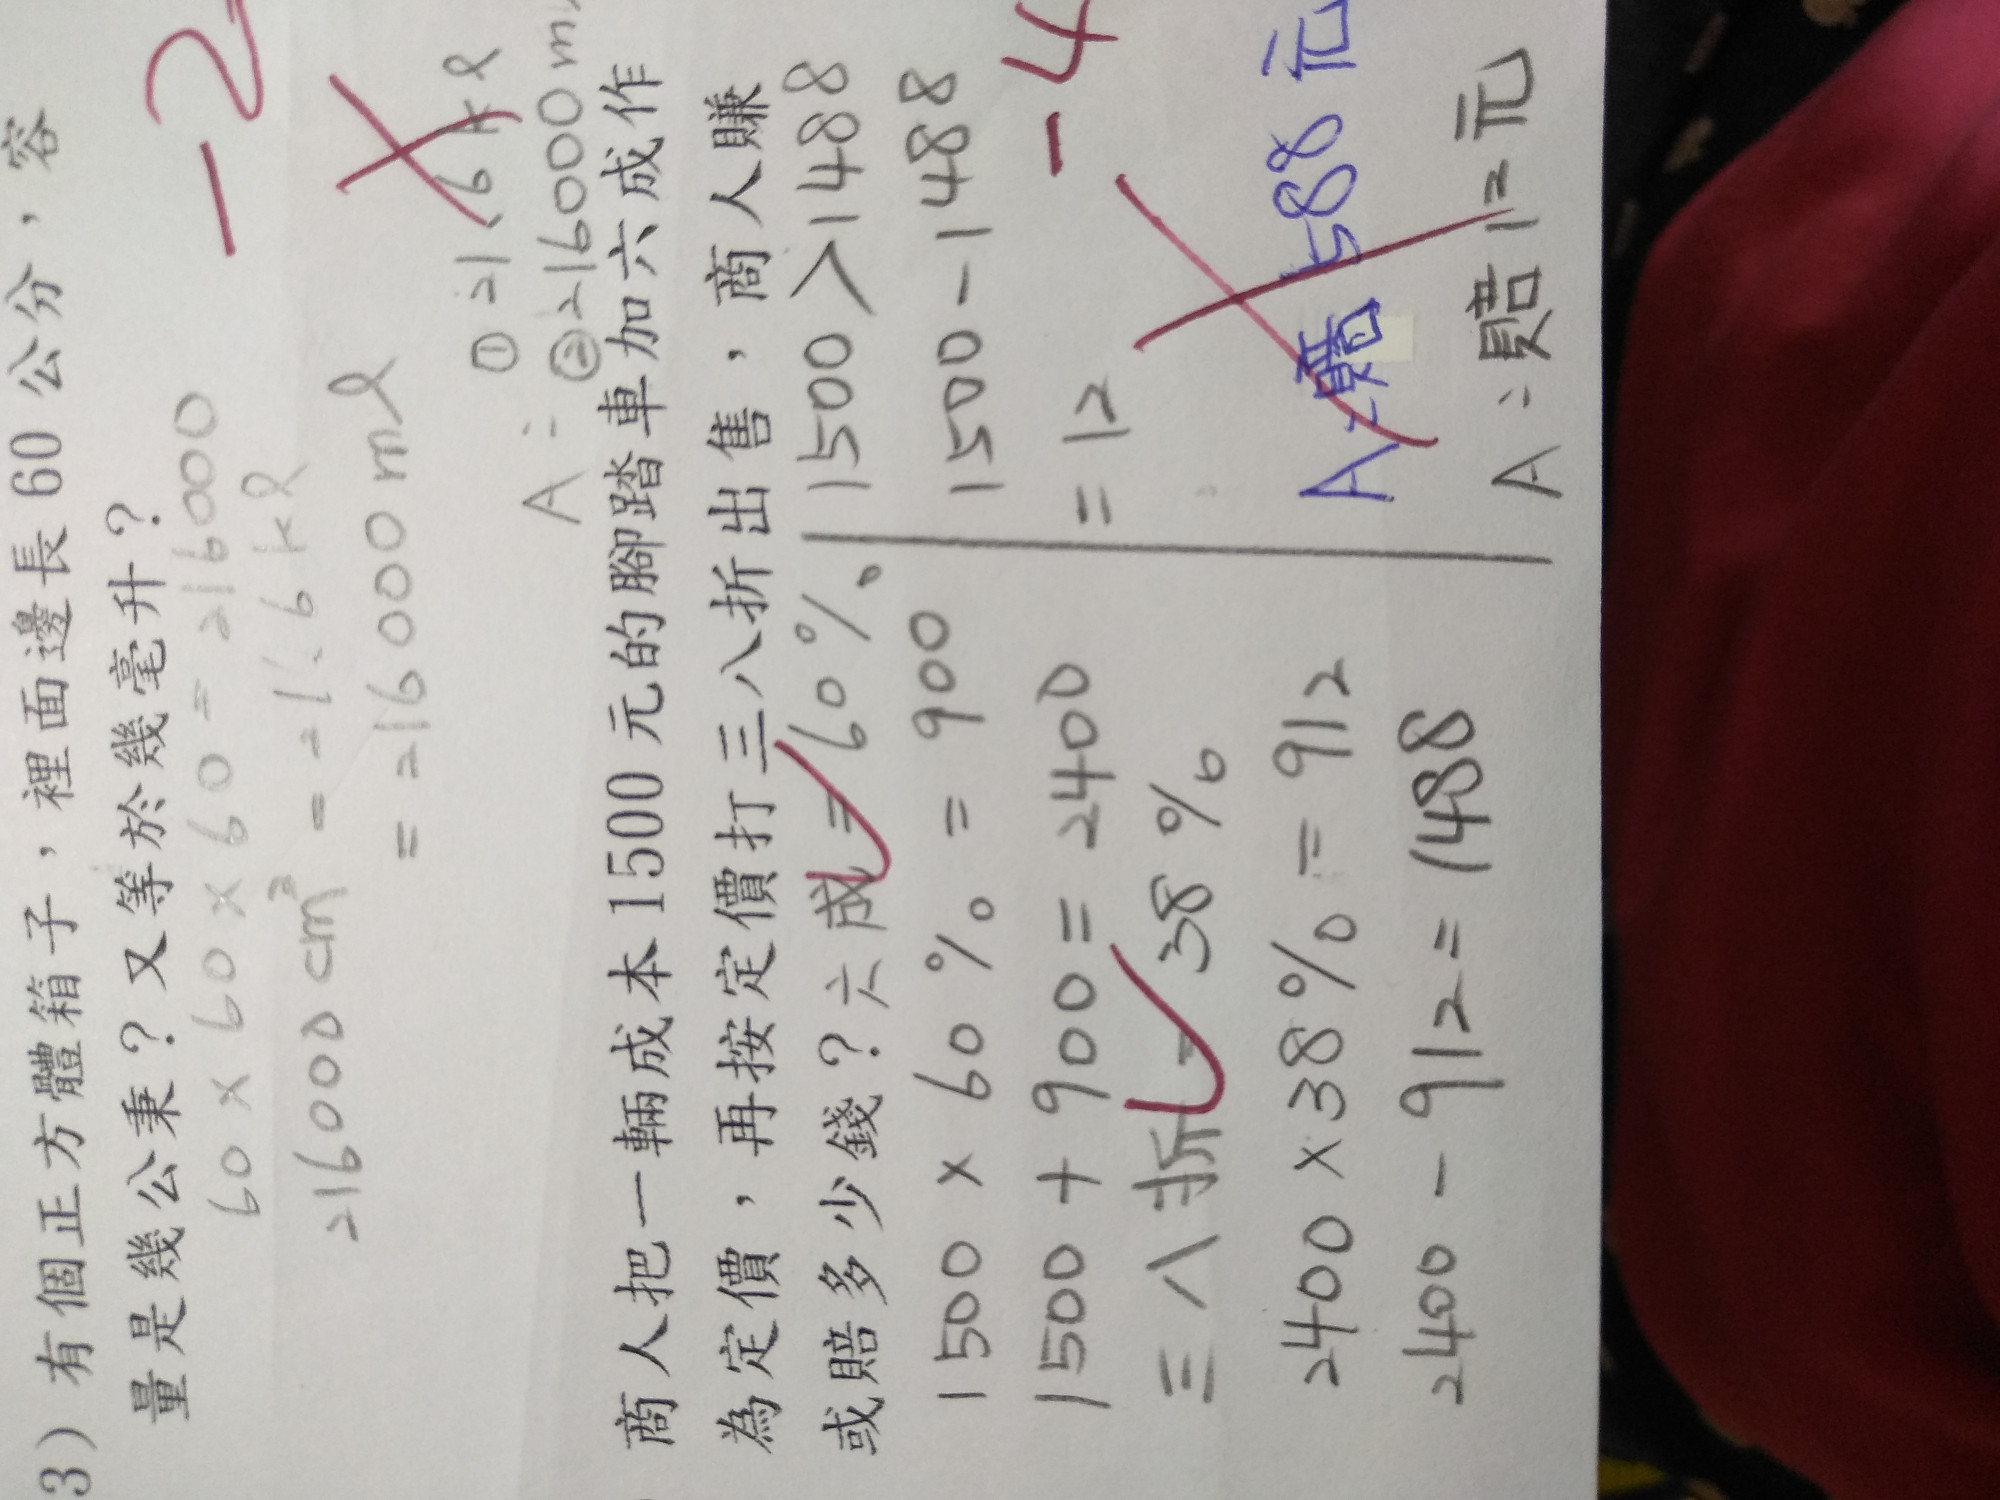 3）有個正方體箱子，裡面邊長60公分，容
量是幾公秉？又等於幾毫升？
-2
60×60×60=216000
216000cm³=21.6kl
=216000ml
A:①21.6kl
②216000ml
商人把一輛成本1500元的腳踏車加六成作
為定價，再按定價打三八折出售，商人賺
或賠多少錢？六成=60%
1500×60%=900
1500+900=2400
三八折=38%
2400×38%=912
2400-912=1488
1500>1488
1500-1488
=12
-4
A:賠588元
A:賠12元